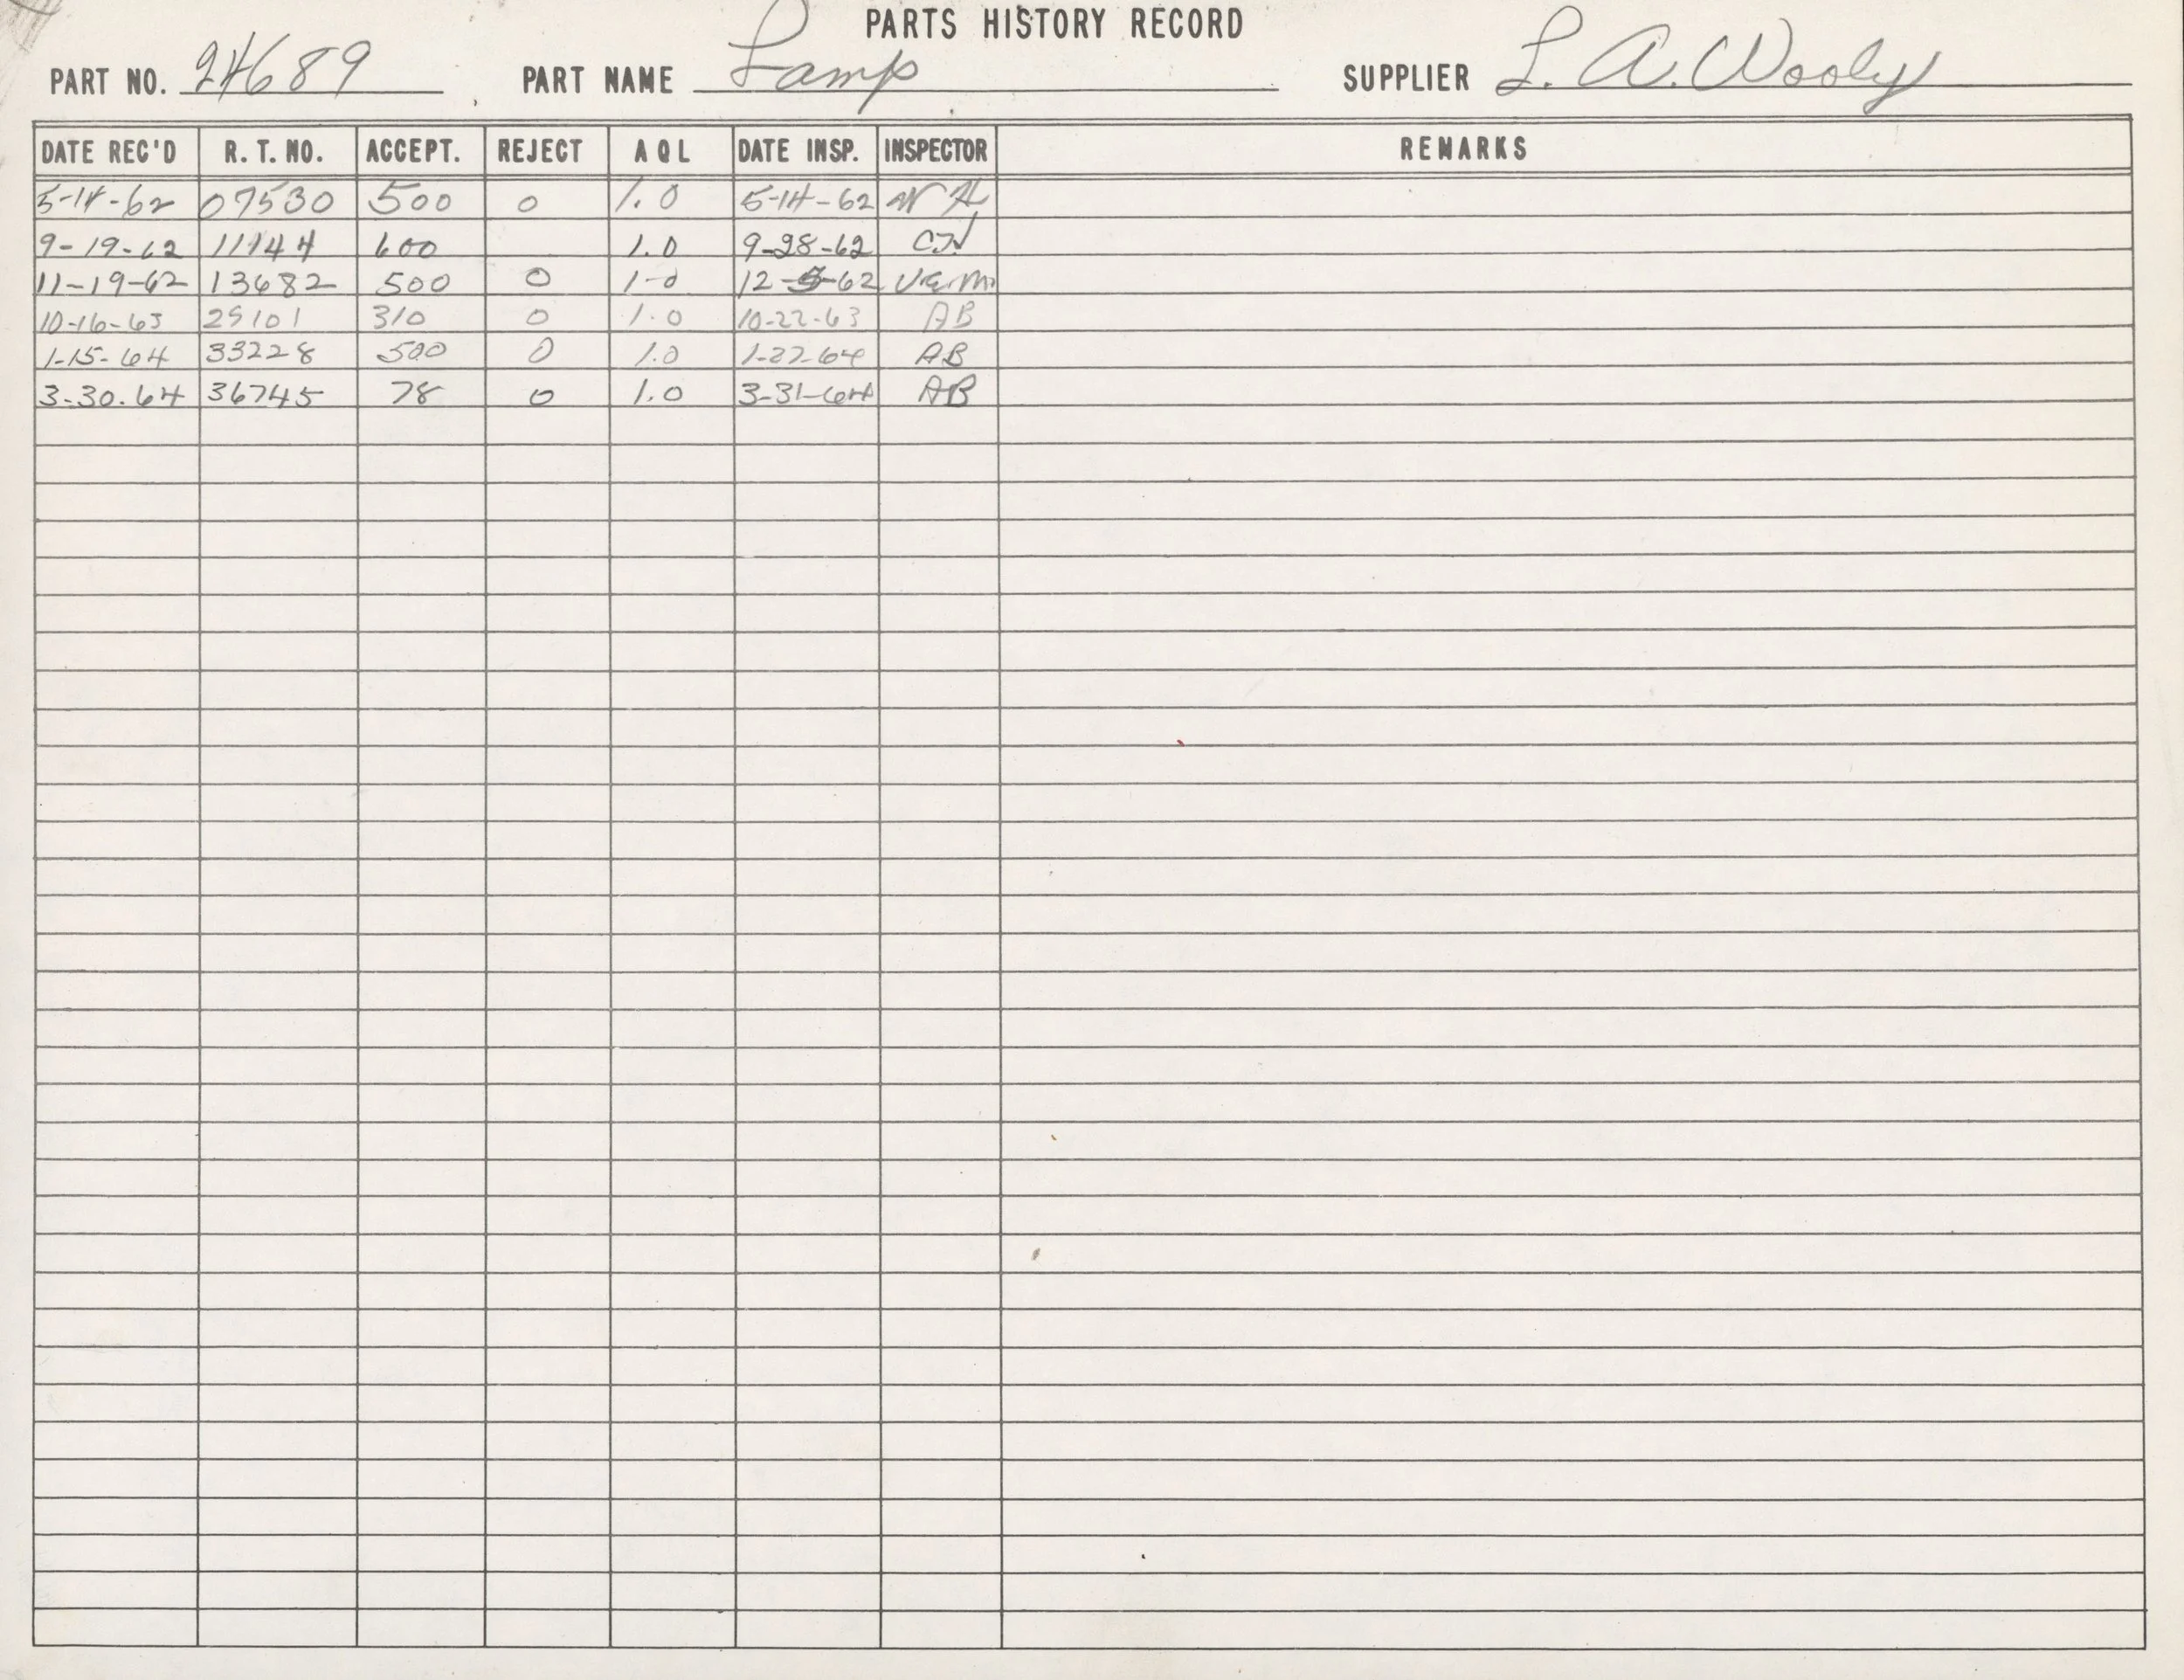 PARTS HISTORY RECORD
PART NO. 24689 PART NAME Lamp SUPPLIER L. A. Wooly
DATE REC'D R. T. NO. ACCEPT. REJECT A Q L DATE INSP. INSPECTOR REMARKS
5-14-62 07530 500 0 1.0 5-14-62
9-19-62 11144 600 1.0 9-28-62
11-19-62 13682 500 0 1-0 12-5-62
10-16-63 29101 310 0 1.0 10-22-63 AB
1-15-64 33228 500 0 1.0 1-27-64 AB
3-30.64 36745 78 0 1.0 3-31-64 AB